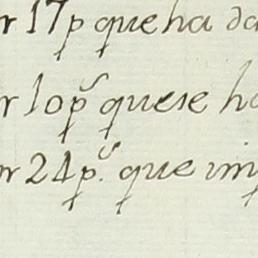 r 17p que ha da
r 10ps que se ha
r 24ps. que imp